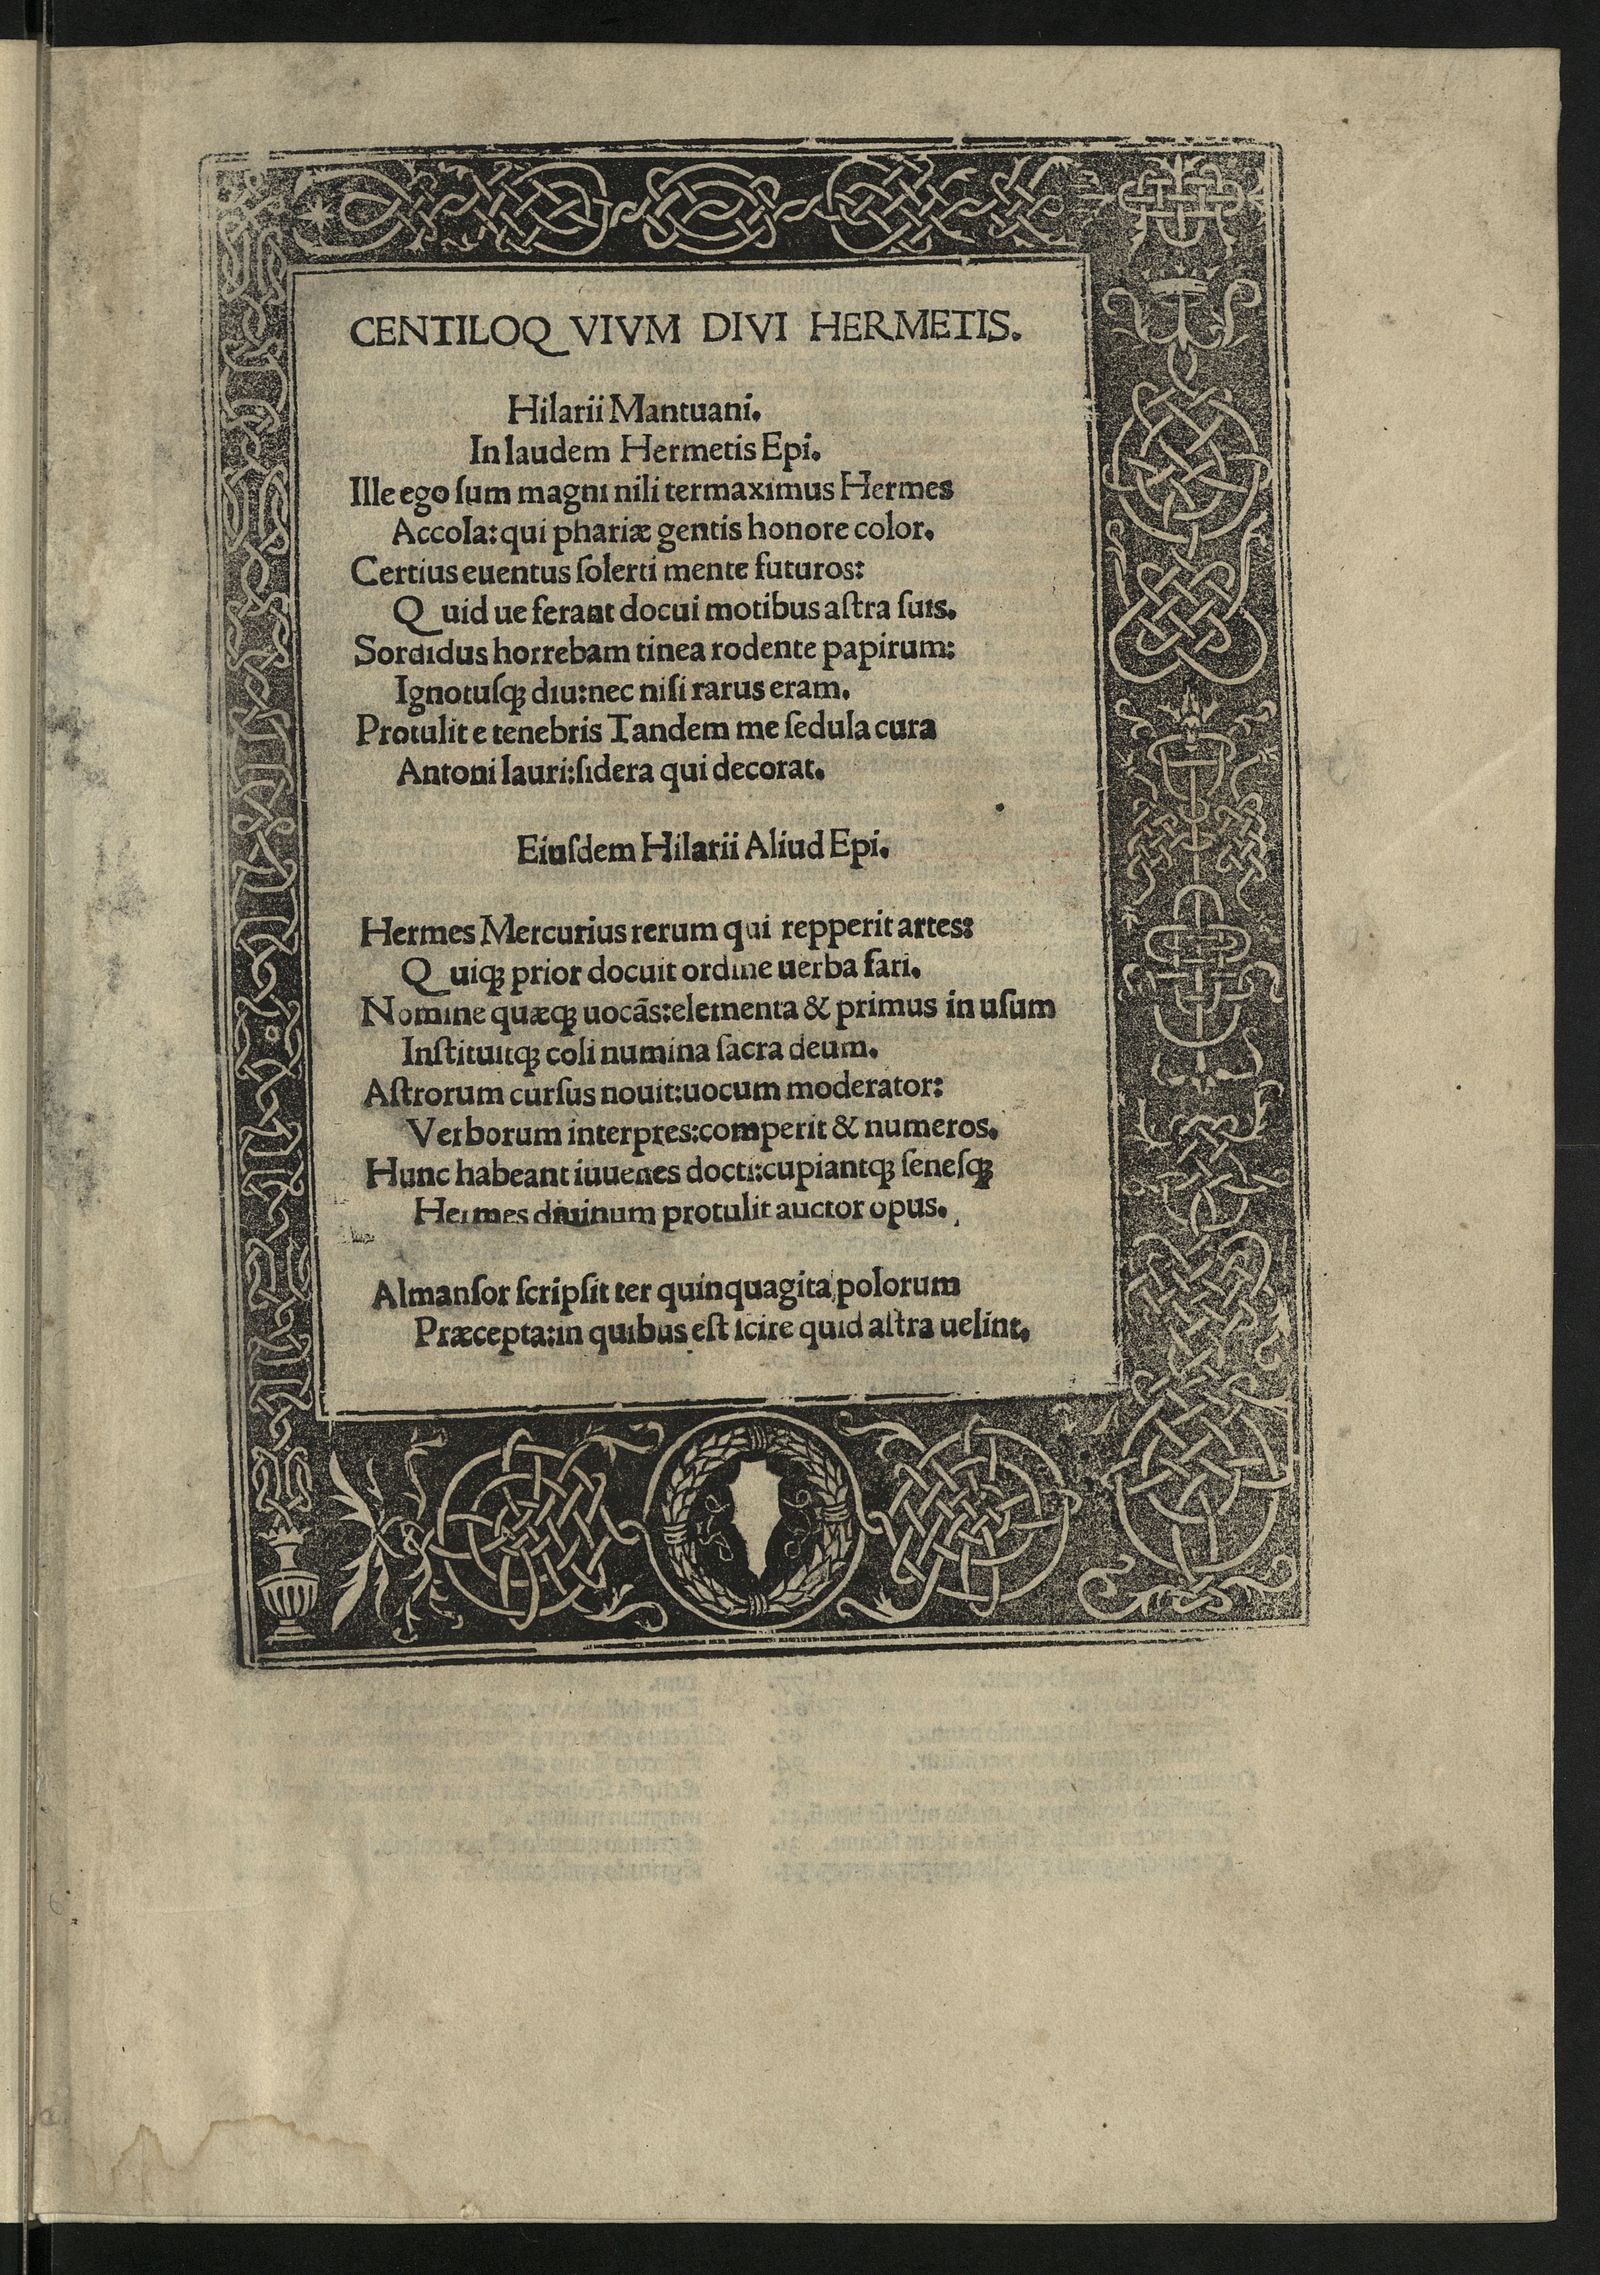 CENTILOQ VIVM DIVI HERMETIS.
Hilarii Mantuani.
In laudem Hermetis Epi.
Ille ego ſum magni nili termaximus Hermes
Accola: qui phariæ gentis honore color.
Certius euentus ſolerti mente futuros:
Q uid ue ferant docui motibus aſtra ſuis.
Sordidus horrebam tinea rodente papirum:
Ignotuſqꝫ diu: nec niſi rarus eram.
Protulit e tenebris Tandem me ſedula cura
Antoni lauri: ſidera qui decorat.
Eiuſdem Hilarii Aliud Epi.
Hermes Mercurius rerum qui repperit artes:
Q uiqꝫ prior docuit ordine uerba fari.
Nomine quæqꝫ uocãs: elementa & primus in uſum
Inſtituitqꝫ coli numina ſacra deum.
Aſtrorum curſus nouit: uocum moderator:
Verborum interpres: comperit & numeros.
Hunc habeant iuuenes docti: cupiantqꝫ ſeneſqꝫ
Hermes diuinum protulit auctor opus.
Almanſor ſcripſit ter quinquagita polorum
Præcepta: in quibus eſt ſcire quid aſtra uelint.